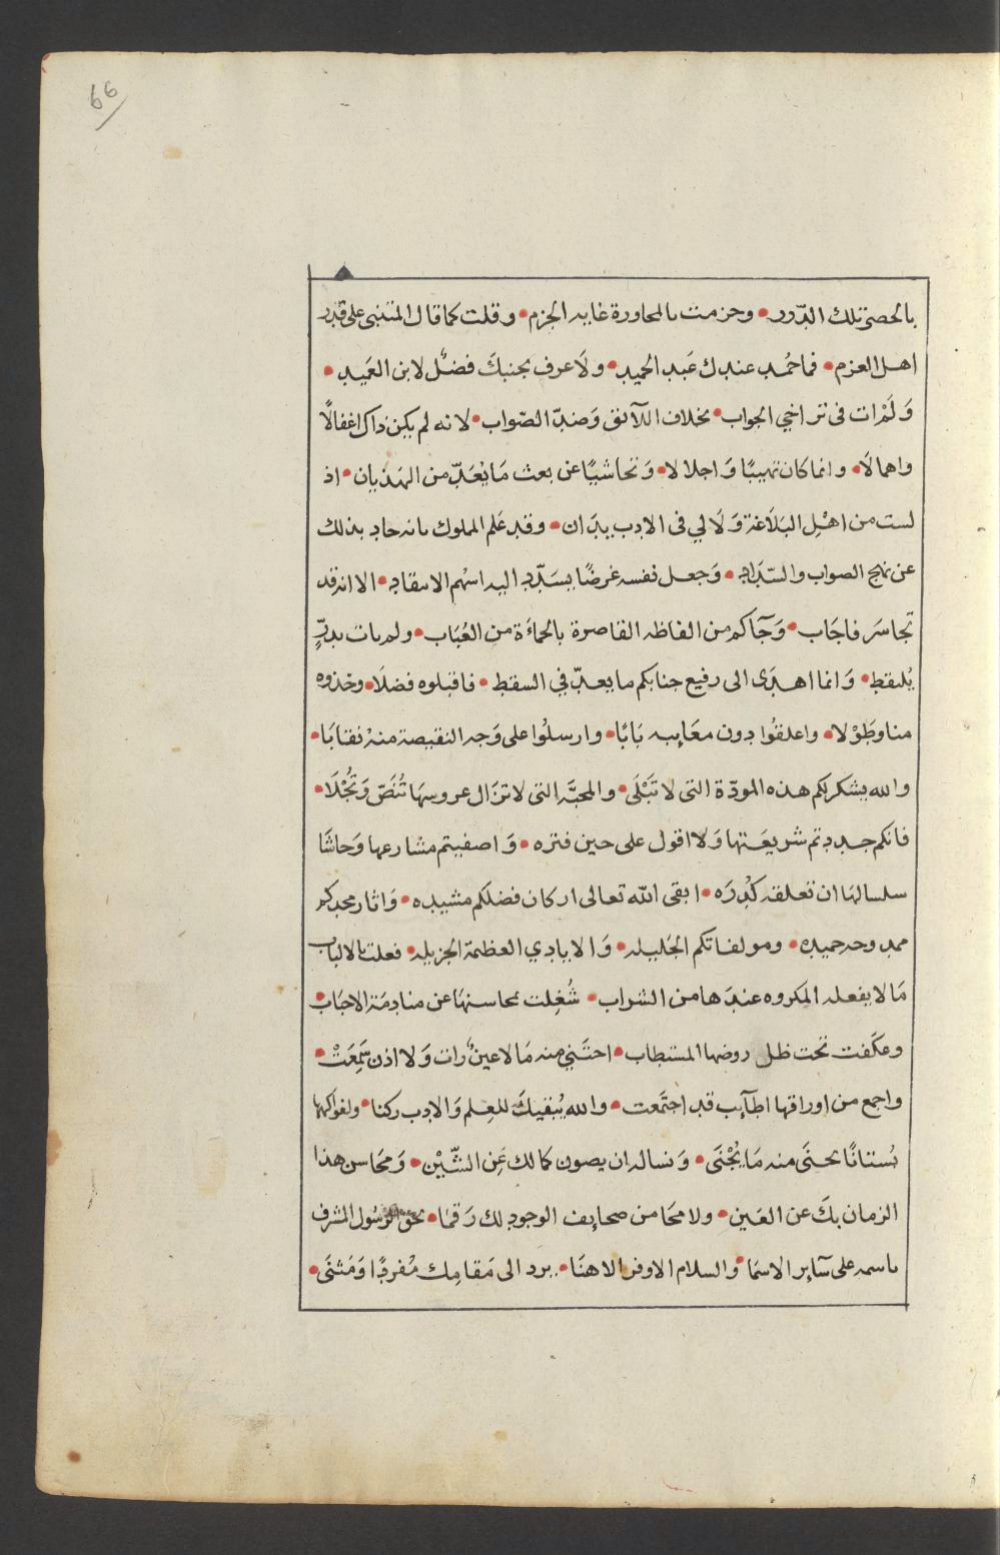 66
بالحصى تلك الدّرر • وحزمت بالمحاورة غايه الحزم • وقلت كما قال المتنبى على قدر
اهل العزم • فما حُمد عندك عَبد الحميد • ولَا عرف بجنبكَ فضلٌ لابن العَميد •
وَلَمْ ات فى تراخي الجواب • بخلاف اللآئق وَضدّ الصّواب • لانه لم يكن ذاك اغفالًا
واهمالَا • وانما كان تهيبًا وَاجلالا • وَتحاشيًا عن بعث مَا يُعَدّ من الهذيان • اذ
لست من اهْلِ البَلَاغة وَلَا لي فى الادب يدَان • وقد عَلم المملوك بانه حاد بذلك
عن نهج الصواب والسّدَاد • وَجعل نفسه غرضًا يسَدّد اليه اسْهم الانتقاد • الا انه قد
تجاسَر فاجَاب • وَجَآكم من الفاظه القاصرة بالحماءَة من العُبَاب • ولم يات بدرٍّ
يُلتقط • وَانما اهدَى الى رفيع جنابكم ما يعدّ في السقط • فاقبلوه فضلَا • وخذوه
منا وطَوْلا • واعلقُوا دون معَايبه بَابًا • وارسلُوا على وَجه النقيصة منهْ نقابَا •
والله يشكر لكم هذه المودّة التى لا تَبْلَى • والمحبَّه التى لا تزَال عروسهَا تُنَصّ وَتُجْلَا •
فانكم جددتم شريعَتها وَلا اقول على حين فتره • وَاصفيتم مشارعها وَحاشَا
سلسالهَا ان تعلقه كُدْرَه • ابقى الله تعالى اركان فضلكم مشيده • وَاثار مجدكم
ممدوحه حميده • ومولفاتكم الجَليله • وَالايادي العظمة الجزيله • فعلت بالالباب
مَا لا يفعله المكروه عندَها من الشراب • شُغِلت بمحاسنهَا عن منادمَة الاحبَاب
وعكَفت تحت ظل روضها المستطاب • اجتَني منه مَا لا عينٌ رات وَلا اذن سَمِعَتْ •
واجمع من اوراقها اطآيب قد اجتمَعت • والله يُبقيكَ للعِلم وَالادب ركنا • ولفواكهما
بُستانًا يجنَى منه مَا يُجْنَى • وَنساله ان يصون كمالك عَن الشَّيْن • وَمحَاسن هذا
الزمان بكَ عن العَين • ولا محَا من صحايف الوجود لك رَقمَا • بحق الرسُول المشرف
باسمه على سَآير الاسمَا • والسلام الاوفر الاهنَا • يرد الى مَقامِك مُفردًا وَمَثنَى •